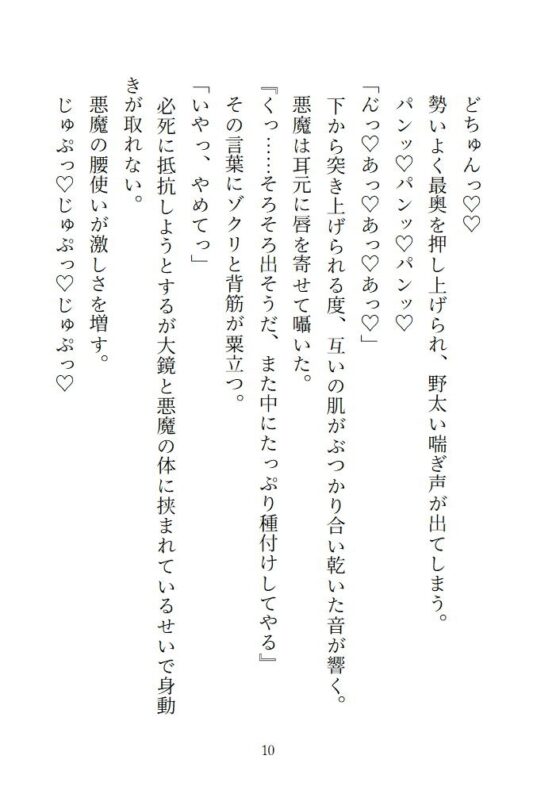 どちゅんっ♡♡
勢いよく最奥を押し上げられ、野太い喘ぎ声が出てしまう。
パンッ♡パンッ♡パンッ♡
「ん゛っ♡あっ♡あっ♡あっ♡」
下から突き上げられる度、互いの肌がぶつかり合い乾いた音が響く。
悪魔は耳元に唇を寄せて囁いた。
『くっ……そろそろ出そうだ、また中にたっぷり種付けしてやる』
その言葉にゾクリと背筋が粟立つ。
「いやっ、やめてっ」
必死に抵抗しようとするが大鏡と悪魔の体に挟まれているせいで身動
きが取れない。
悪魔の腰使いが激しさを増す。
じゅぷっ♡じゅぷっ♡じゅぷっ♡
10